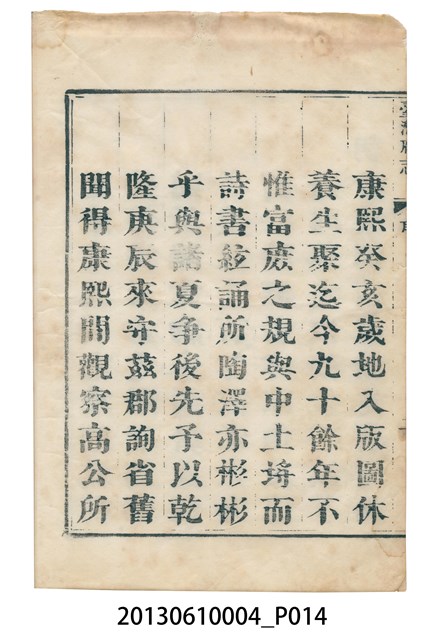 康熙癸亥歲地入版圖休
養生聚迄今九十餘年不
惟富庶之規與中土埒而
詩書絃誦所陶澤亦彬彬
乎與諸夏爭後先予以乾
隆庚辰來守茲郡詢省舊
聞得康熙間觀察高公所
20130610004_P014